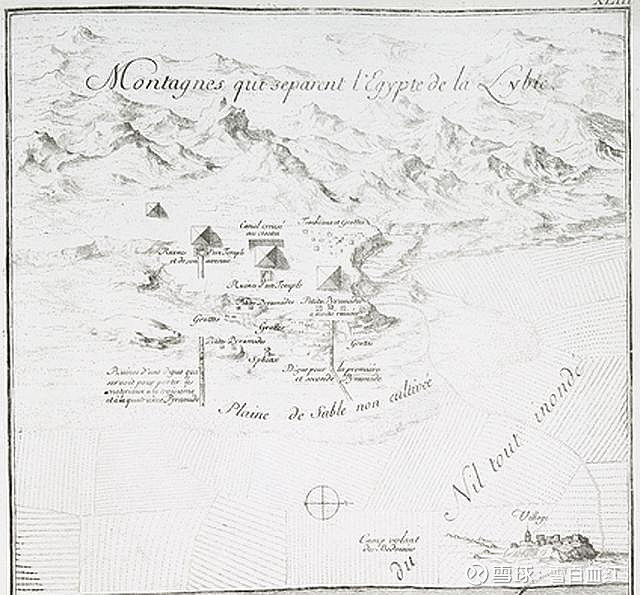 XLIII
Montagnes qui separent l'Egypte de la Lybie.
Canal creusé
au ciseau
Tombeaux et Grottes
Ruines d'un Temple
et de son avenue
Ruines d'un Temple
Petites Pyramides
Petites Pyramides
Grottes
Grottes
Grottes
Petites Pyramides
Sphinx
Ruines d'une Digue qui
servoit pour porter les
materiaux a la troisieme
et à la quatrieme Pyramide
Digue pour la premiere
et seconde Pyramide
Plaine de Sable non cultivée
Nil tout inondé
Village
Camp volant
des Bedouins
du
雪球：雪白血红